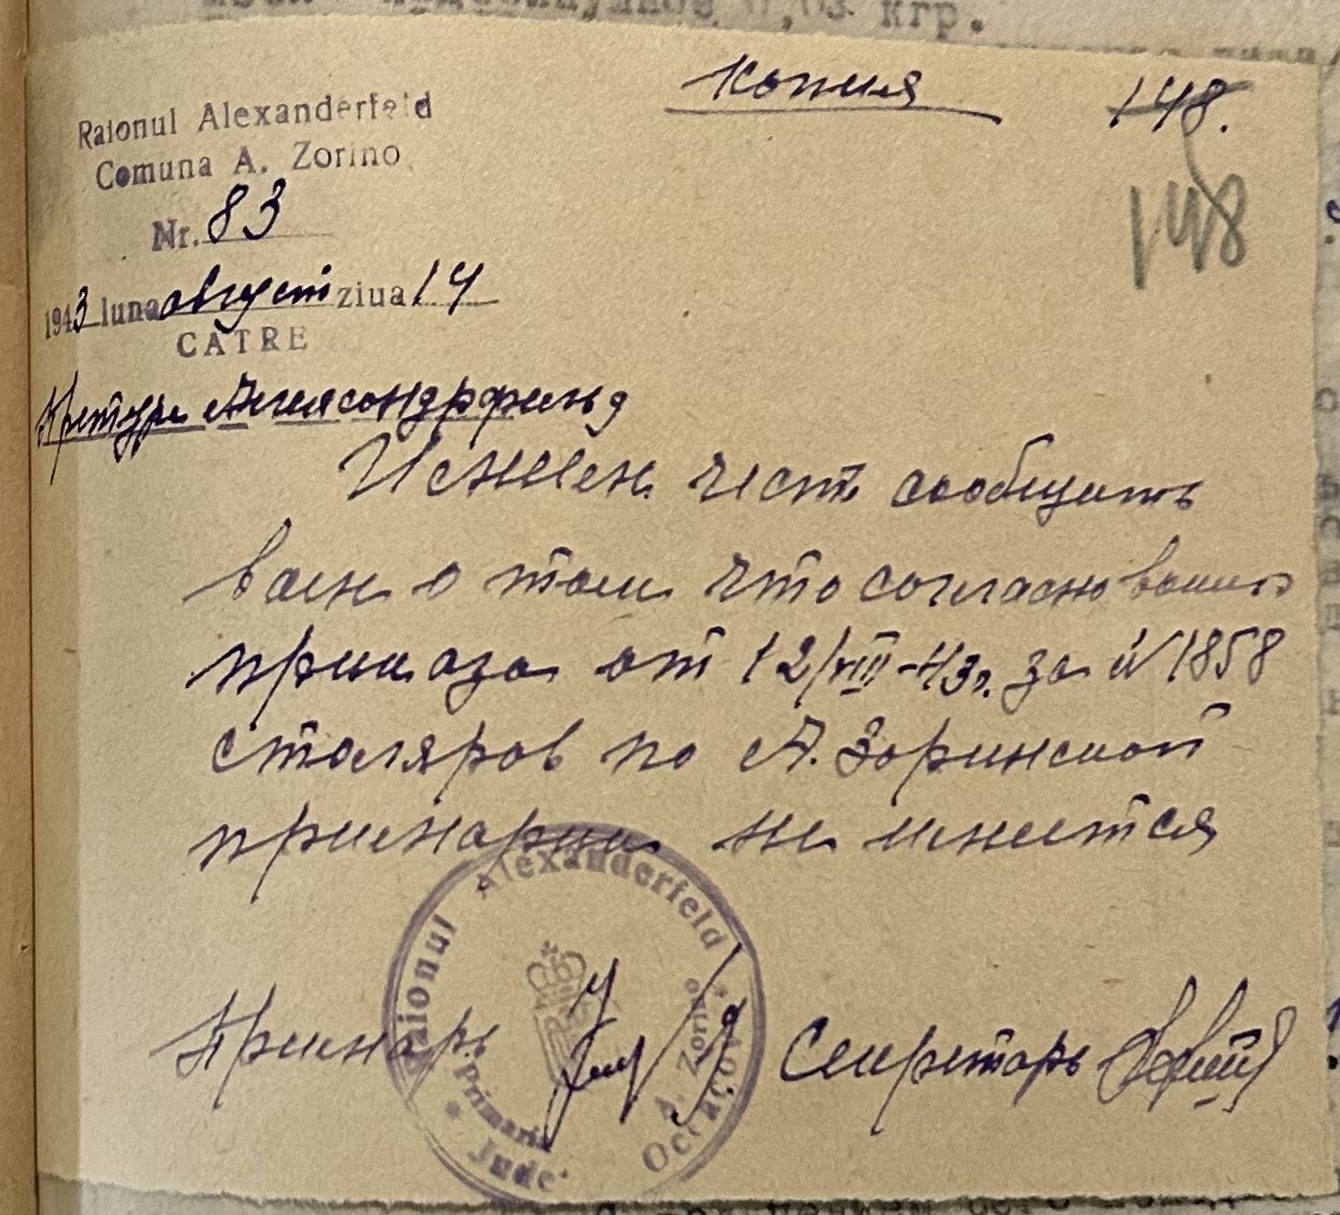 копия
148.
148
Raionul Alexanderfeld
Comuna A. Zorino
Nr. 83
1943 luna август ziua 14
CĂTRE
Претура Александрфельд
Имеем честь сообщить
вам о том что согласно ваших
приказа от 12/VIII-43г. за № 1858
столяров по А. Зоринской
примарии не имеется
Примарь
Секретарь
Raionul Alexanderfeld
Primaria A. Zorino
Jude. Oceacov